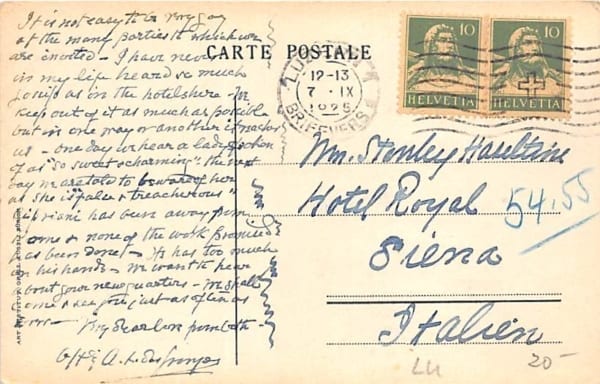 It is not easy to be very gay
at the many parties to which we
are invited - I have never
in my life heard so much
gossip as in the hotels here - We
keep out of it as much as possible
but in one way or another it reaches
us - One day we hear a lady spoken
of as "so sweet & charming" the next
day we are told to beware of her
as she is "false & treacherous"
has been away from
& none of the work promised
has been done - He has too much
on his hands - We want to hear
about your new quarters - We shall
come & see you just as often as
Very dear love from both -
CARTE POSTALE
LU
12-13
7. IX
1925
BRIEFVERS
10
HELVETIA
10
HELVETIA
Mrs. Stanley Haseltine
Hotel Royal
Siena
Italien
54.55
20-